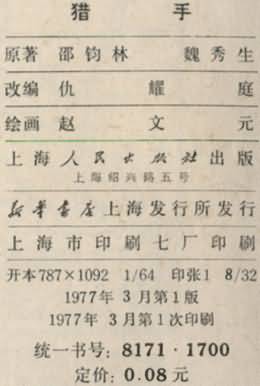 猎手
原著 邵钧林 魏秀生
改编 仇耀庭
绘画 赵文元
上海人民出版社出版
上海绍兴路五号
新华书店上海发行所发行
上海市印刷七厂印刷
开本787×1092 1/64 印张1 8/32
1977年3月第1版
1977年3月第1次印刷
统一书号：8171·1700
定价：0.08元